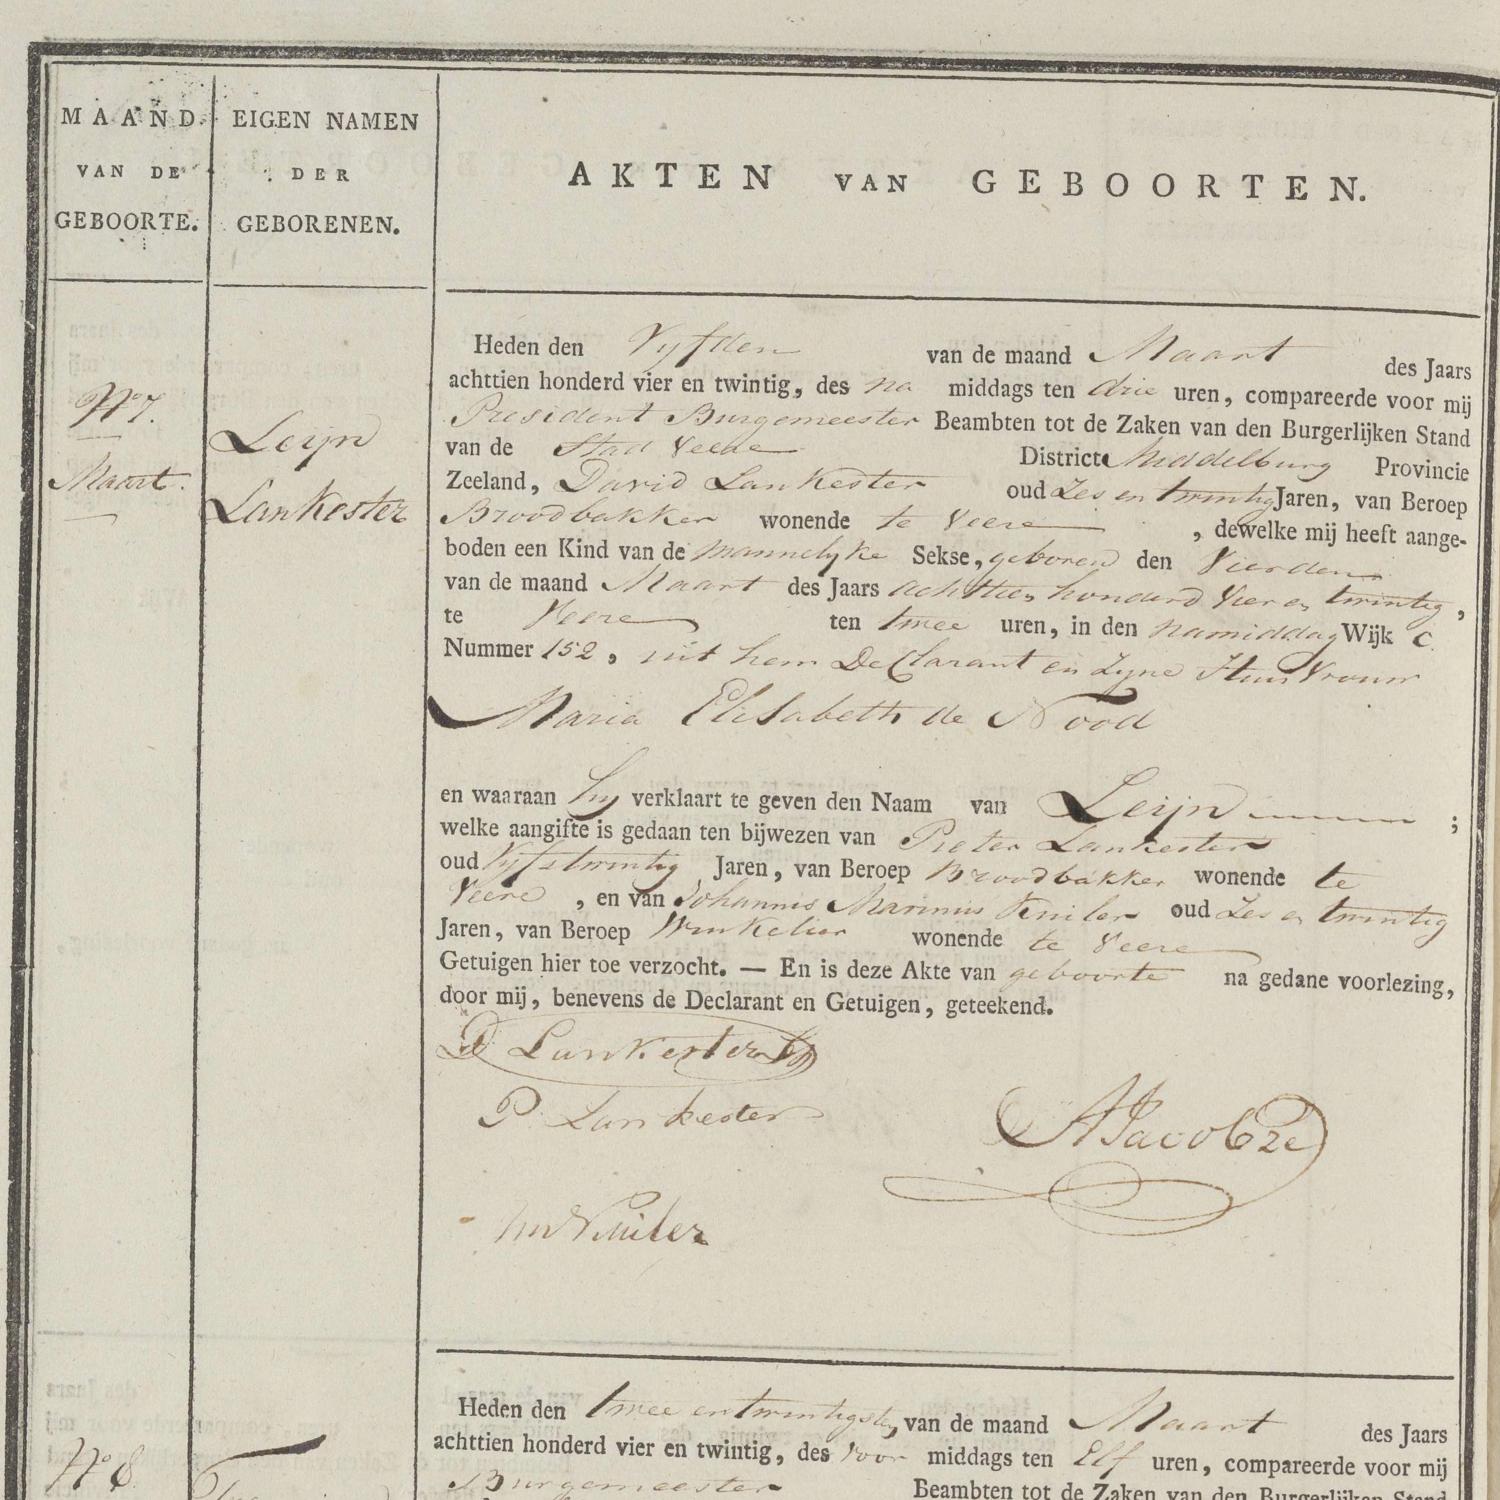 MAAND
VAN DE
GEBOORTE.
EIGEN NAMEN
DER
GEBORENEN.
AKTEN VAN GEBOORTEN.
No 7.
Maart.
Leijn
Lankester
Heden den Vyfden van de maand Maart des Jaars
achttien honderd vier en twintig, des na middags ten drie uren, compareerde voor mij
President Burgemeester Beambten tot de Zaken van den Burgerlijken Stand
van de Stad Veere District Middelburg Provincie
Zeeland, David Lankester oud Zes en twintig Jaren, van Beroep
Broodbakker wonende te Veere , dewelke mij heeft aange-
boden een Kind van de mannelyke Sekse, geboren den Vierden
van de maand Maart des Jaars achttien honderd Vier en twintig,
te Veere ten twee uren, in den namiddag Wijk C.
Nummer 152, uit hem Declarant en Zyne Huisvrouw
Maria Elisabeth de Nood
en waaraan hy verklaart te geven den Naam van Leijn ;
welke aangifte is gedaan ten bijwezen van Pieter Lankester
oud Vyfentwintig Jaren, van Beroep Broodbakker wonende te
Veere , en van Johannis Marinus Kuiler oud Zes en twintig
Jaren, van Beroep Winkelier wonende te Veere
Getuigen hier toe verzocht. — En is deze Akte van geboorte na gedane voorlezing,
door mij, benevens de Declarant en Getuigen, geteekend.
D Lankester
P. Lankester
AJacobze
JM Kuiler
No 8
Heden den twee en twintigsten van de maand Maart des Jaars
achttien honderd vier en twintig, des voor middags ten Elf uren, compareerde voor mij
Burgemeester Beambten tot de Zaken van den Burgerlijken Stand